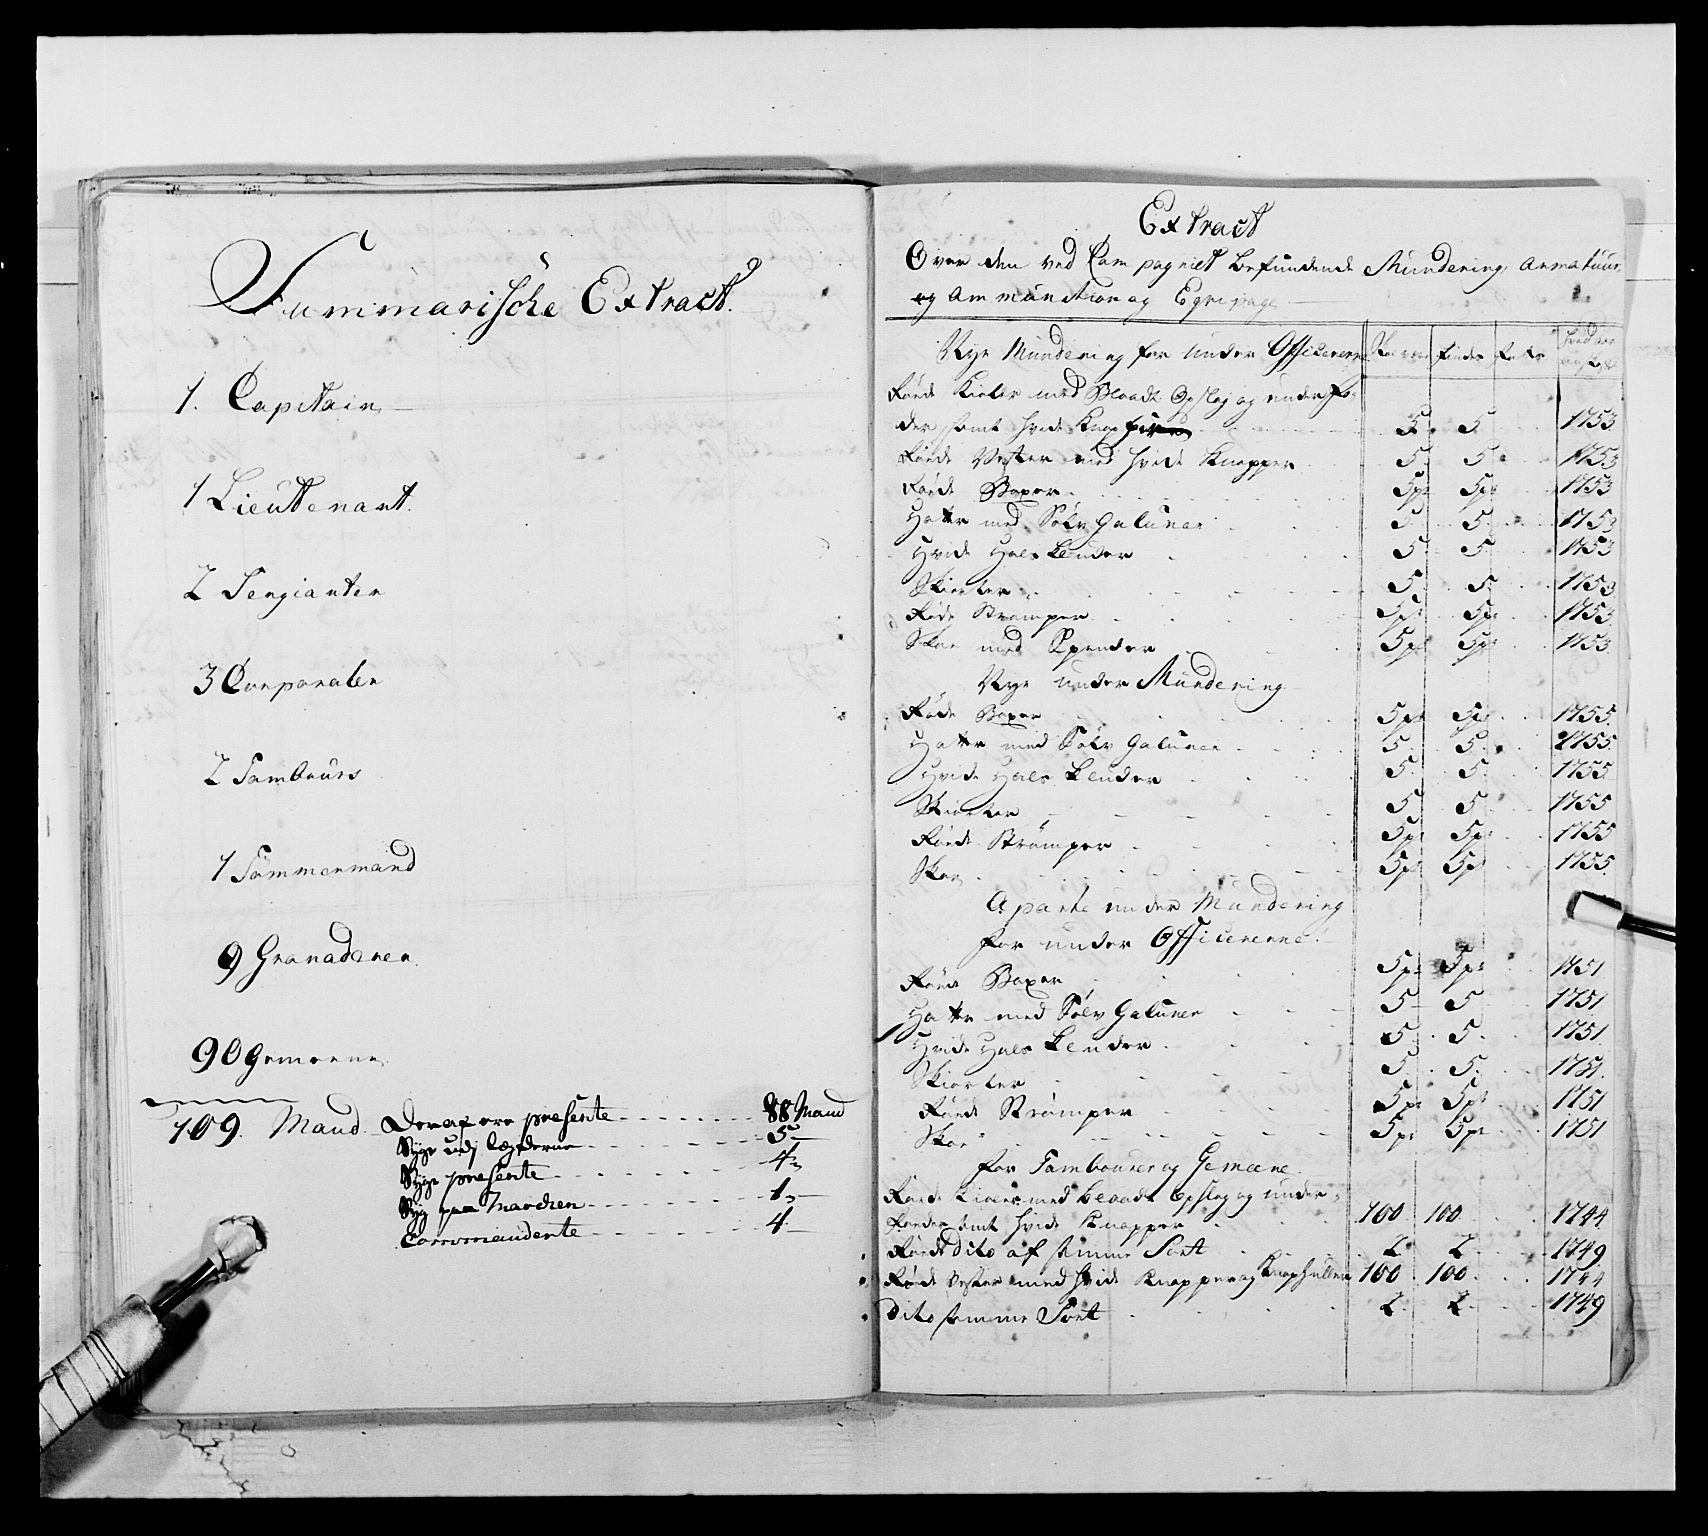 Summarische Extract.
1. Capitain
1 Lieutenant.
2 Sergianter
3 Corporaler
2 Tambours
1 Tømmermand
9 Granaderer
90 Gemeene
109. Mand Deraf ere presente 88 Mand
Syge udj Lægderne 5
Syge presente 4
Syg paa Marchen 1
Commanderte 4
Extract
Over den ved Compagniet befundende Mundering, Armatuur,
og Ammunition og Eqvipage
Nye Mundering for under Officererne Skal være findes hvad aar
Røde Kioler med Blaadt Opslag og under Fo-
der samt hvide Knapper 5. 5 1753
Røde Vester med hvide Knapper 5. 5 1753
Røde Boxer 5pr 5pr 1753
Hatte med Sølv Galuner 5 5 1753
Hvide Hals Kluder 5 5 1753
Skiorter 5 5 1753
Røde Strømper 5pr 5pr 1753
Skoe med Spender 5pr 5pr 1753
Nye under Mundering
Røde Boxer 5pr 5pr 1755
Hatte med Sølv Galuner 5 5 1755
Hvide Hals Kluder 5 5 1755
Skiorter 5 5 1755
Røde Strømper 5pr 5pr 1755
Skoe 5pr 5pr 1755
Aparte under Mundering
for under Officererne
Røde Boxer 5pr 5pr 1751
Hatte med Sølv Galuner 5 5 1751
Hvide Hals Kluder 5 5 1751
Skiorter 5 5 1751
Røde Strømper 5pr 5pr 1751
Skoe 5pr 5pr 1751
for Tambourer og Gemeene
Røde Kioler med blaadt Opslag og under
Foeder samt hvide Knapper 100 100 1744
Røede dito af samme Sort 2 2 1749
Røde Vester med hvide Knapper og Knaphuller 100 100 1744
dito samme Sort 2 2 1749